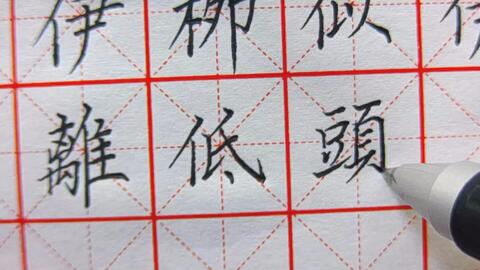 伊柳似
離低頭